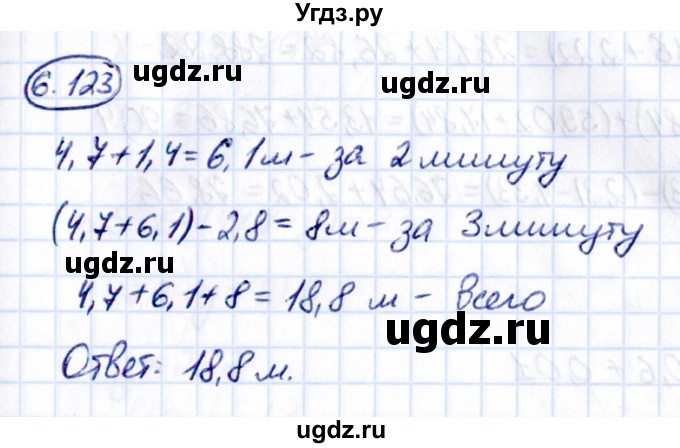 Угдз.ру
6.123
ugdz.ru
ugdz.ru
4,7+1,4=6,1м- за 2 минуту
(4,7+6,1)-2,8=8м-за 3минуту
ugdz.ru
ugdz.ru
4,7+6,1+8=18,8 м - всего
ugdz.ru
Ответ: 18,8м.
ugdz.ru
Угдз.ру